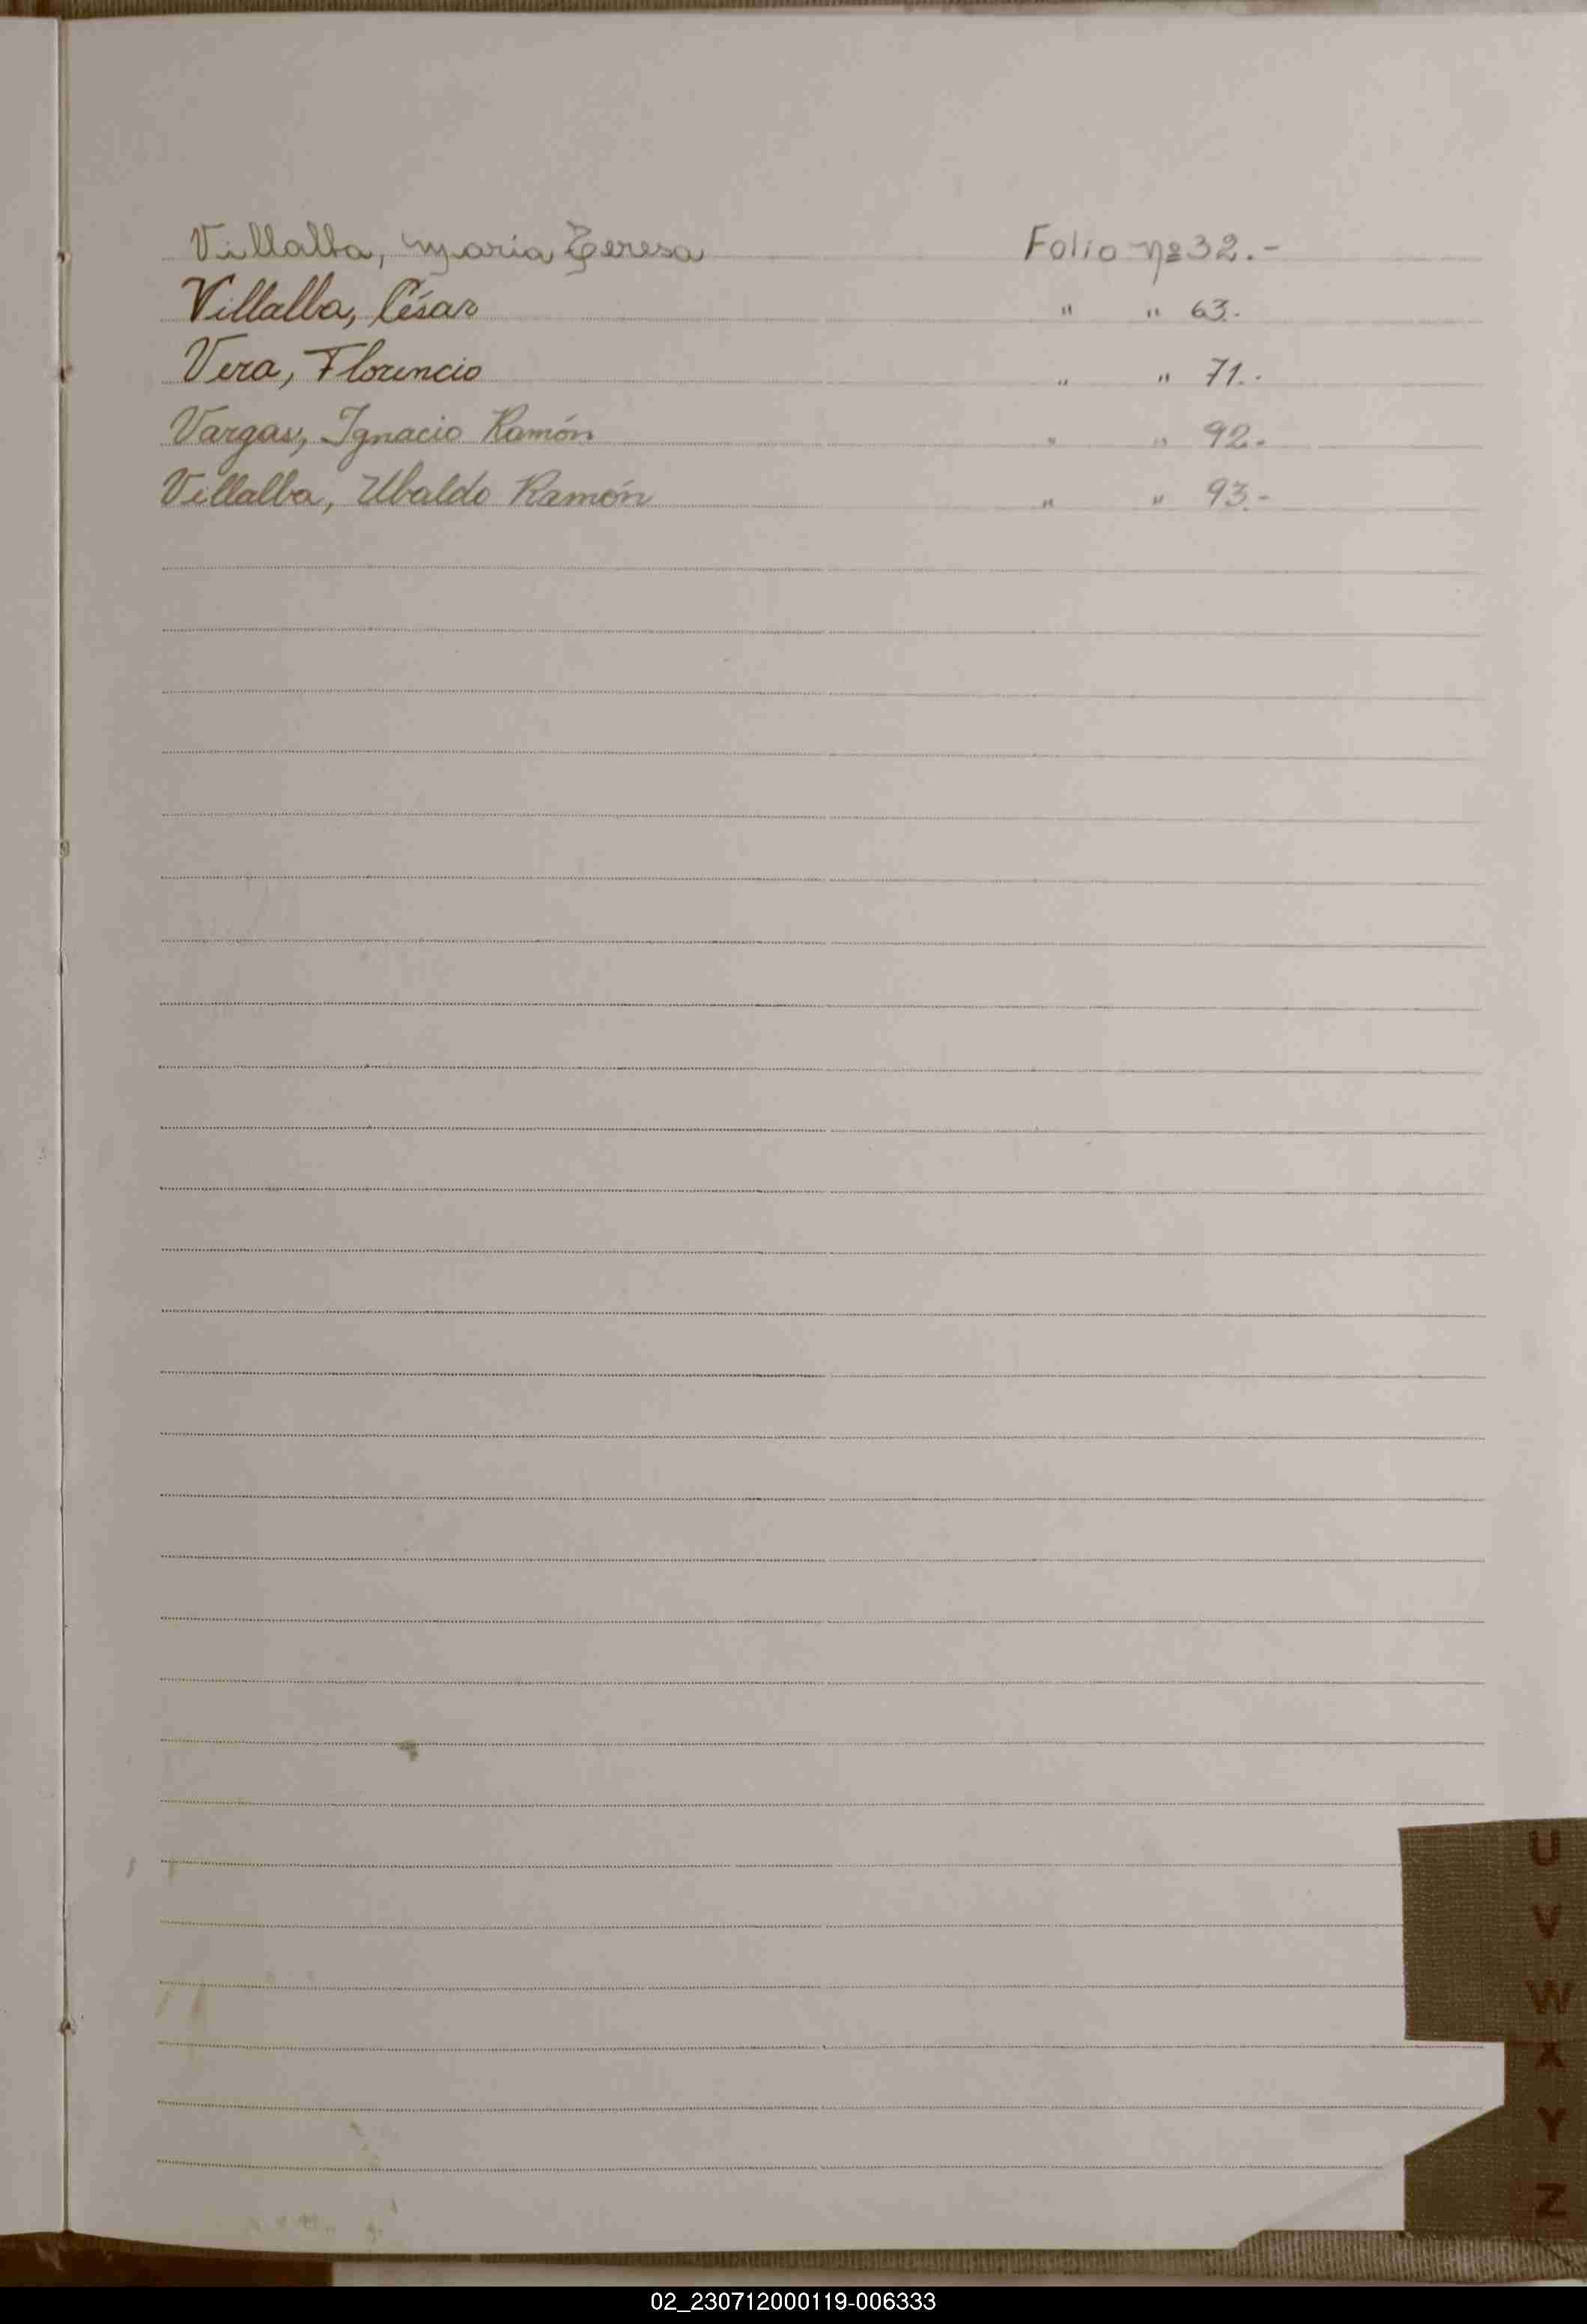 Villalba, Maria Teresa Folio nº 32.-
Villalba, César " " 63.-
Vera, Florencio " " 71.-
Vargas, Ignacio Ramón " " 92.-
Villalba, Ubaldo Ramón " " 93.-
U
V
W
X
Y
Z
02_230712000119-006333